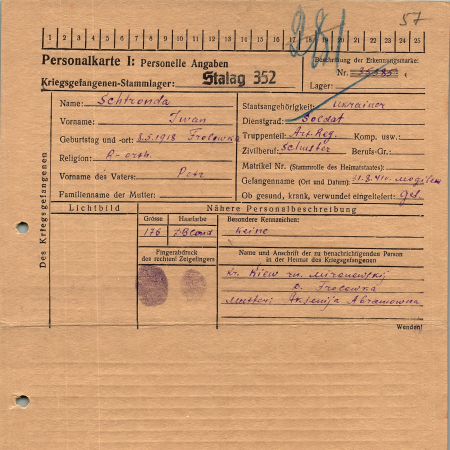 57
1 2 3 4 5 6 7 8 9 10 11 12 13 14 15 16 17 18 19 20 21 22 23 24 25
Personalkarte I: Personelle Angaben
Beschriftung der Erkennungsmarke:
Kriegsgefangenen-Stammlager: Stalag 352
Nr.
Lager:
Des Kriegsgefangenen
Name: Schtronda
Vorname: Iwan
Geburtstag und -ort: 8.5.1918 Frolowka
Religion: R-orth.
Vorname des Vaters: Petr
Familienname der Mutter:
Staatsangehörigkeit: Ukrainer
Dienstgrad: Soldat
Truppenteil: Art. Reg. Komp. usw.:
Zivilberuf: Schuster Berufs-Gr.:
Matrikel Nr. (Stammrolle des Heimatstaates):
Gefangennahme (Ort und Datum): 21.8.41 Mogilew
Ob gesund, krank, verwundet eingeliefert: ges.
Lichtbild
Nähere Personalbeschreibung
Grösse Haarfarbe Besondere Kennzeichen:
176 D Blond keine
Fingerabdruck
des rechten! Zeigefingers
Name und Anschrift der zu benachrichtigenden Person
in der Heimat des Kriegsgefangenen
Kr. Kiew rn. Mironowskij
d. Frolowka
Mutter: Aksenija Abramowna
Wenden!